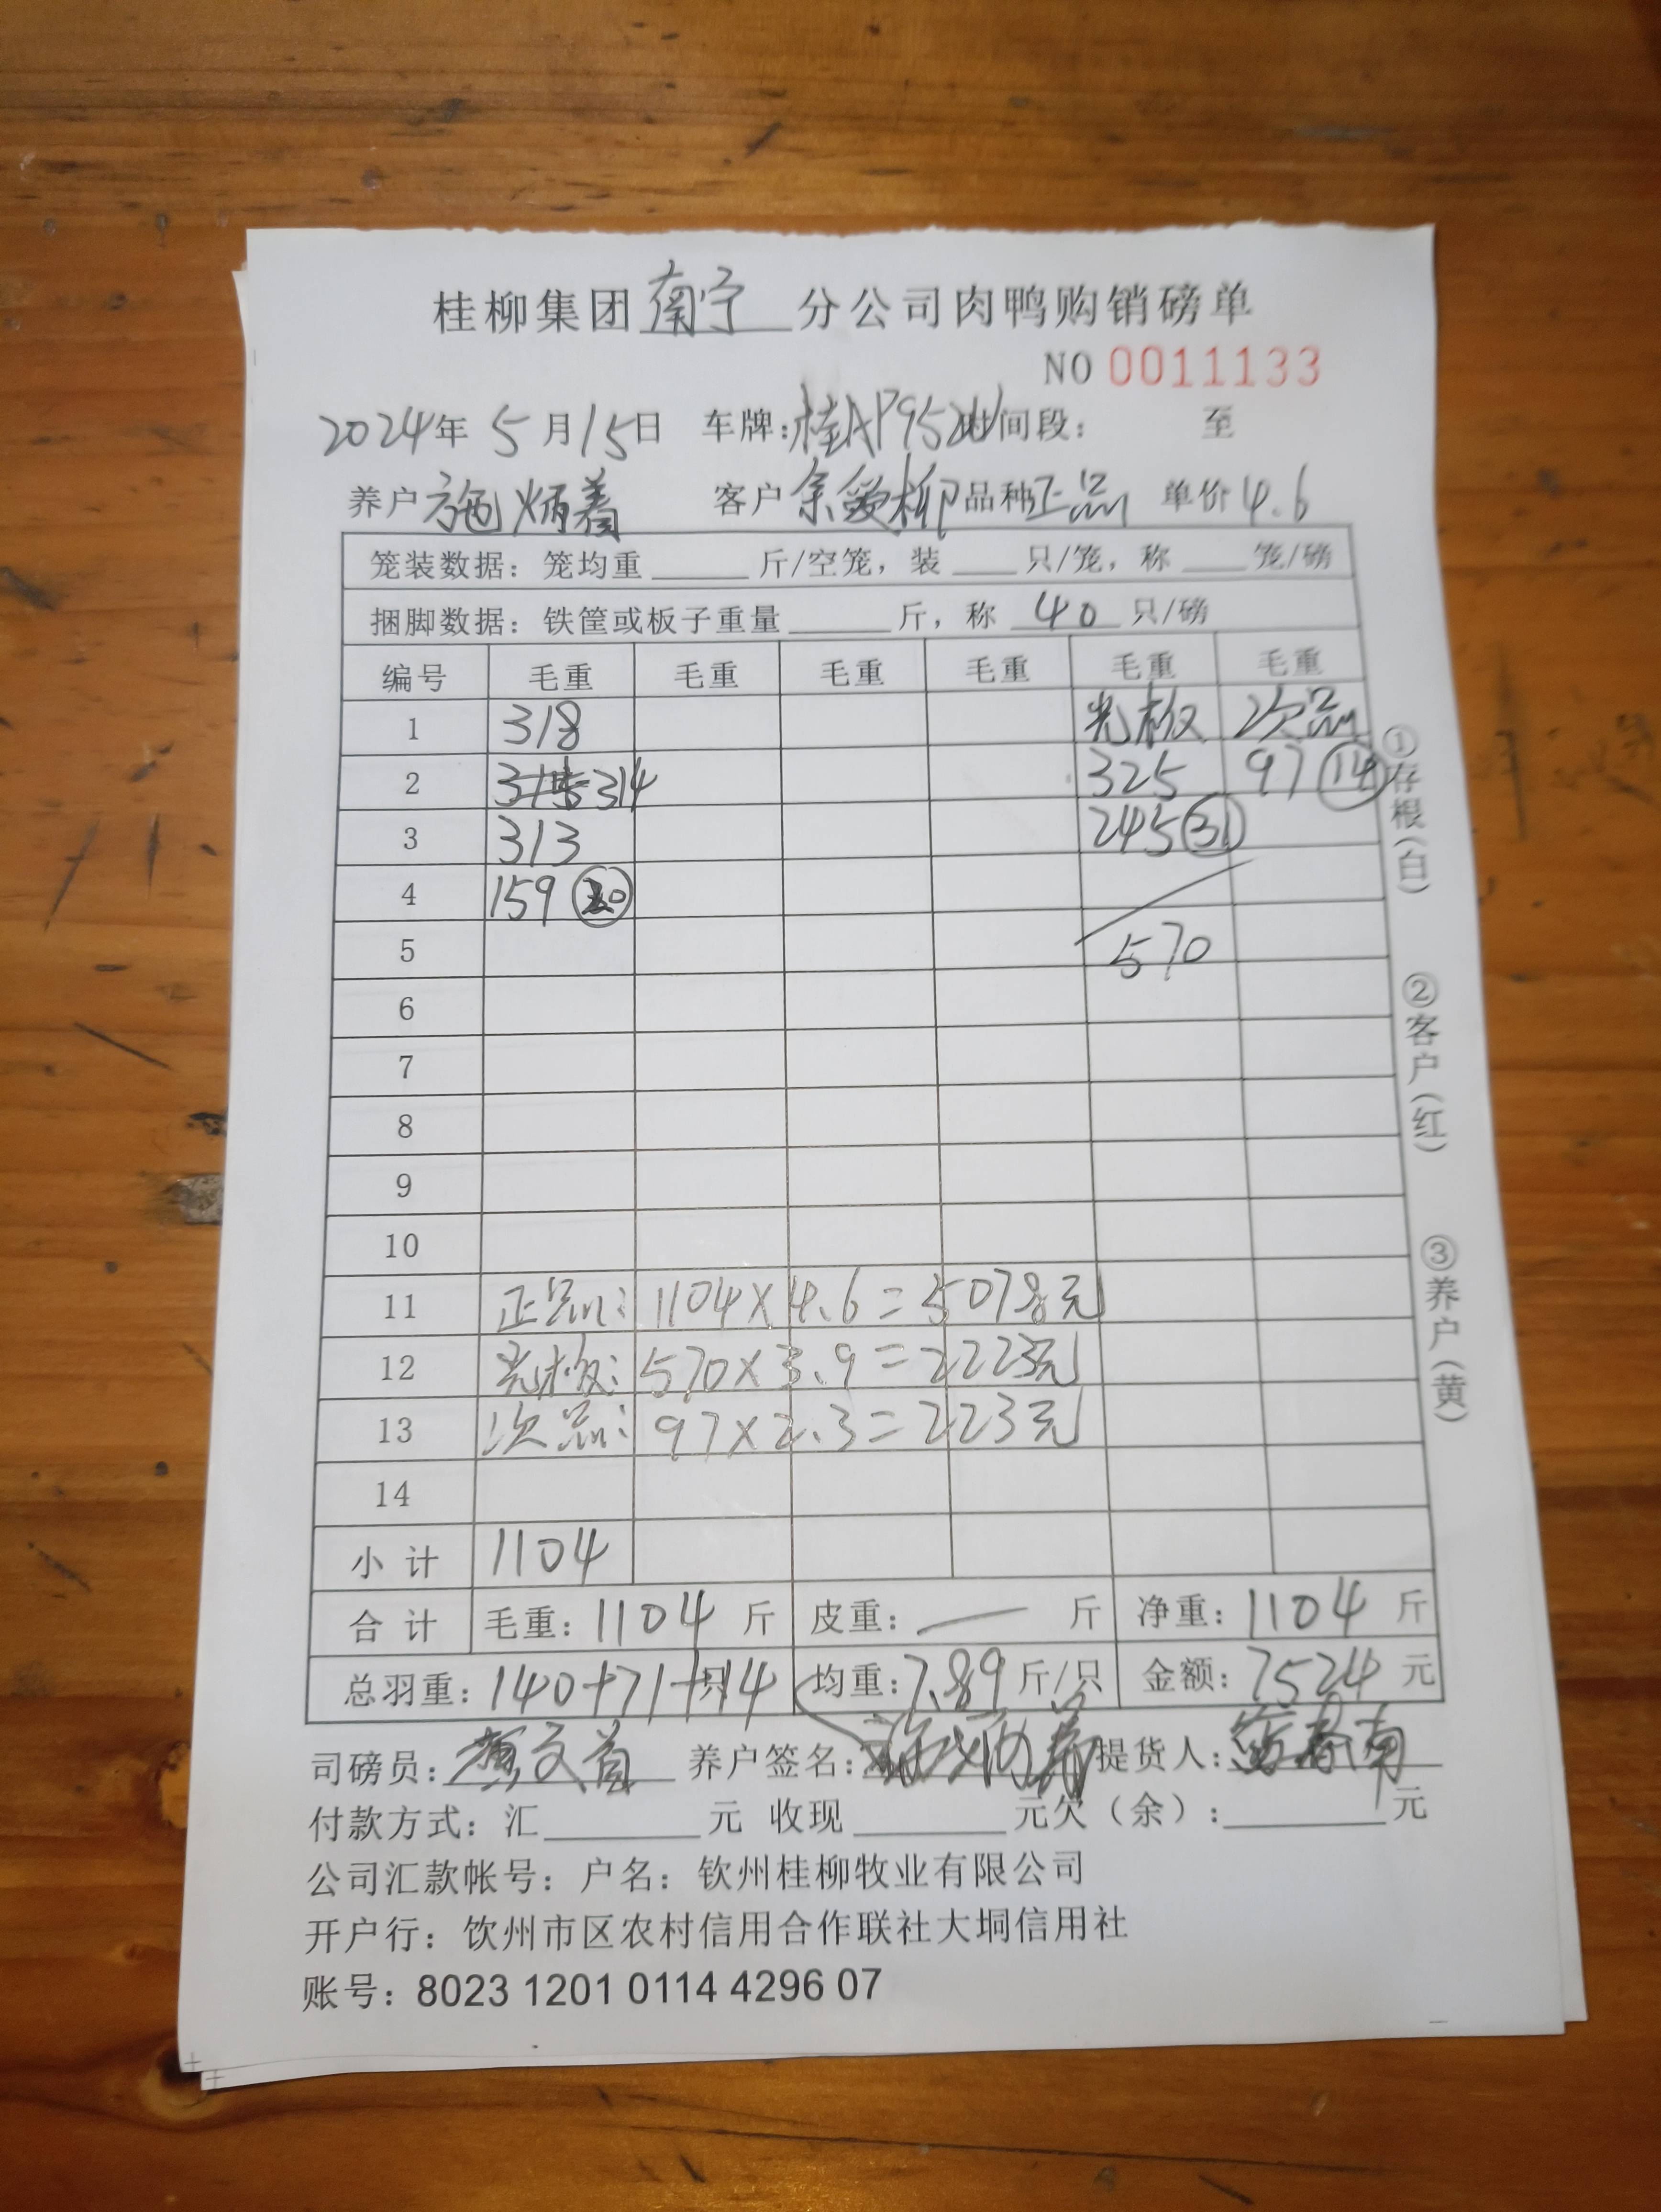 桂柳集团南宁分公司肉鸭购销磅单
NO 0011133
2024年 5月15日 车牌:桂AP952W 时间段: 至
养户 施炳着 客户 余爱柳 品种 正品 单价 4.6
笼装数据: 笼均重 斤/空笼, 装 只/笼, 称 笼/磅
捆脚数据: 铁筐或板子重量 斤, 称 40 只/磅
编号 毛重 毛重 毛重 毛重 毛重 毛重
1 318 光板 次品
2 314 325 97 14
3 313 245 31
4 159 20
5 570
6
7
8
9
10
11 正品: 1104×4.6=5078元
12 光板: 570×3.9=2223元
13 次品: 97×2.3=223元
14
小计 1104
合计 毛重: 1104 斤 皮重: — 斤 净重: 1104 斤
总羽重: 140+71+14 只 均重: 7.89 斤/只 金额: 7524 元
司磅员: 养户签名: 施炳着 提货人:
付款方式: 汇 元 收现 元欠(余): 元
公司汇款帐号: 户名: 钦州桂柳牧业有限公司
开户行: 钦州市区农村信用合作联社大垌信用社
账号: 8023 1201 0114 4296 07
①存根(白)
②客户(红)
③养户(黄)